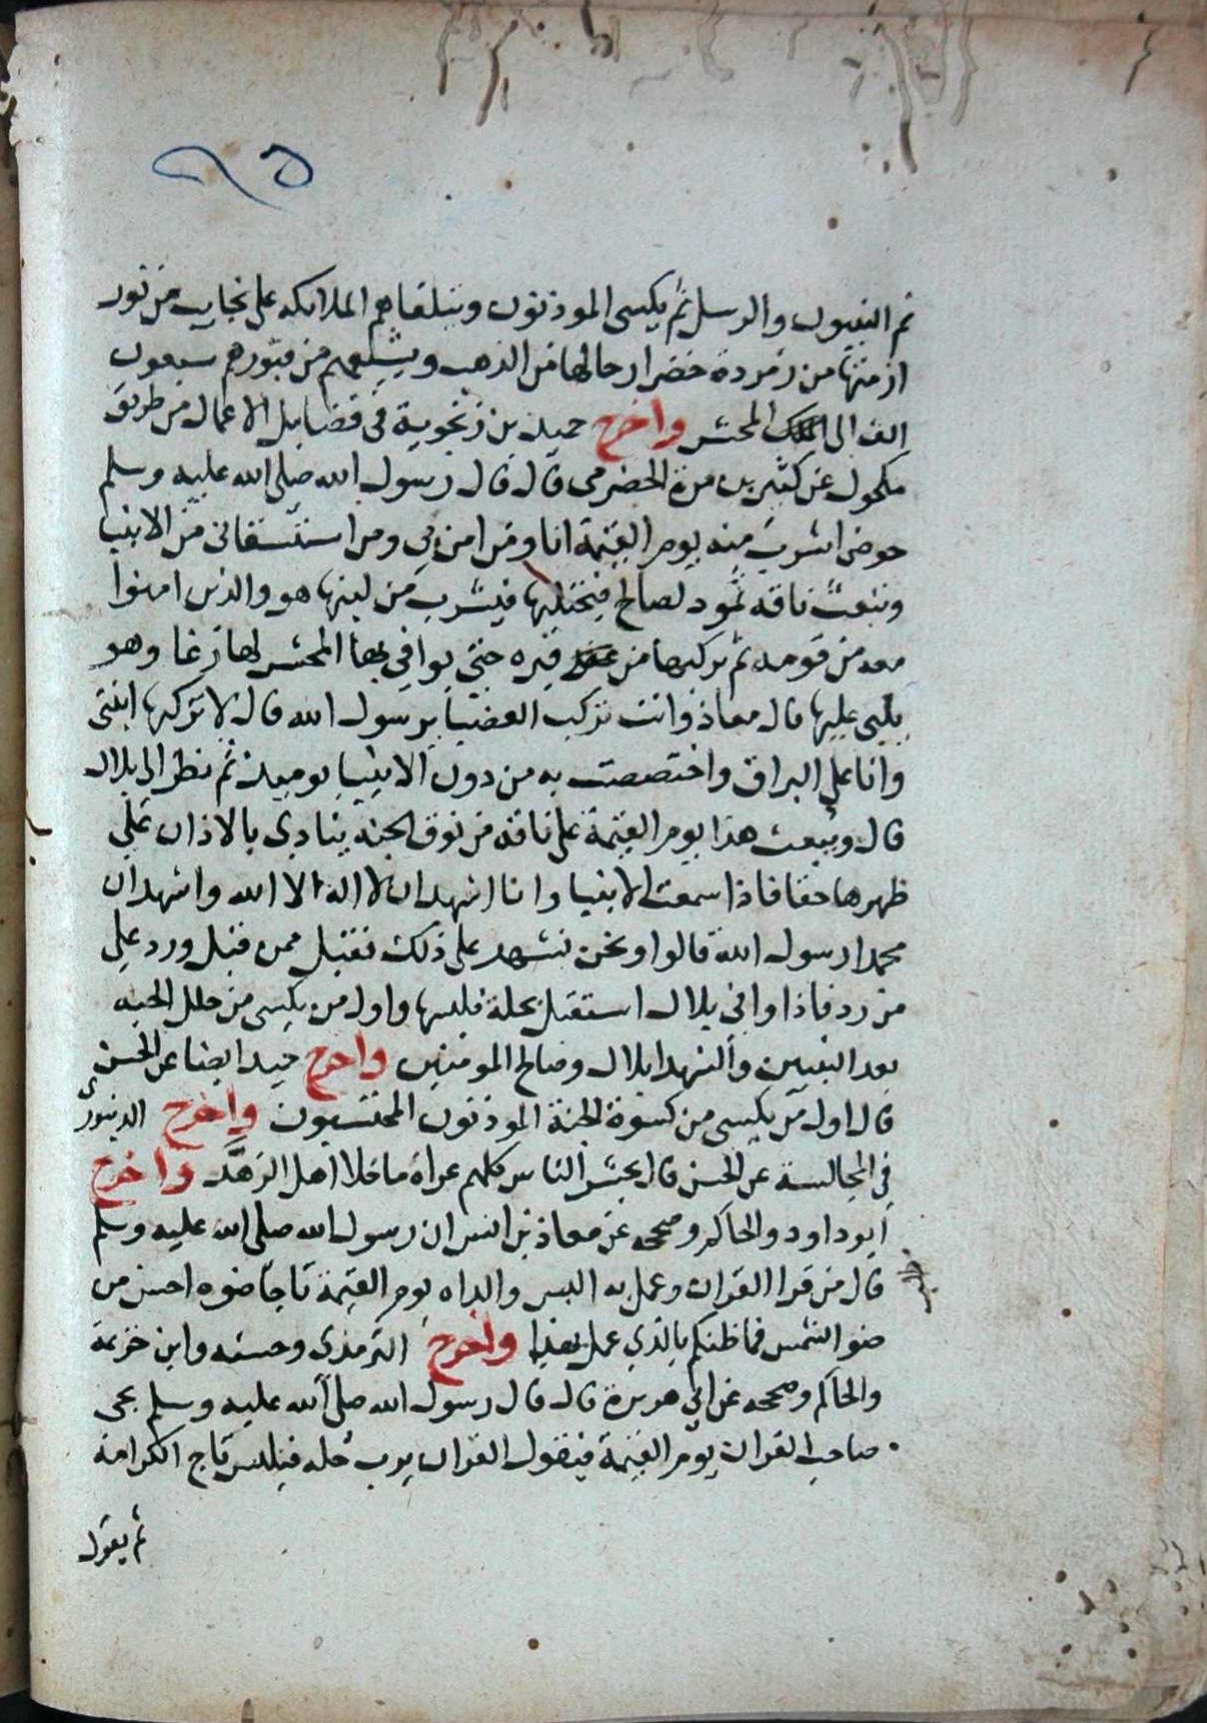 ٩٥
ثم النبيون والرسل ثم يكسى الموذنون وتتلقاهم الملايكه على نجايب من نور
ازمتها من زمردة خضرا رحالها من الذهب ويشيعهم من قبورهم سبعون
الف الى المحشر واخرج حميد بن زنجوية في فضايل الاعمال من طريق
مكحول عن كثير بن مرة الحضرمي قال قال رسول الله صلى الله عليه وسلم
حوضى اشرب منه يوم القيمة انا ومن امن بي ومن استسقانى من الانبيا
وتبعث ناقة ثمود لصالح فيحتلبها فيشرب من لبنها هو والذين امنوا
معه من قومه ثم يركبها من عند قبره حتى يوافي بها المحشر لها رغا وهو
يلبى عليها قال معاذ وانت تركب العضبا يرسول الله قال لا تركبها ابنتى
وانا على البراق واختصصت به من دون الانبيا يوميذ ثم نظر الى بلال
قال ويبعث هذا يوم القيمة على ناقة من نوق الجنه ينادي بالاذان على
ظهرها حقا فاذا سمعت الانبيا وانا اشهد ان لا اله الا الله واشهد ان
محمدا رسول الله قالوا ونحن نشهد على ذلك فقبل ممن قبل ورد على
من رد فاذا وافي بلال استقبل بحلة فلبسها واول من يكسى من حلل الجنه
بعد النبيين والشهدا بلال وصالح المومنين واخرج حميد ايضا عن الحسن
قال اول من يكسى من كسوة الجنة الموذنون المحتسبون واخرج الدينورى
في المجالسة عن الحسن قال يحشر الناس كلهم عراة ما خلا اهل الزهد واخرج
ابو داود والحاكم وصححه عن معاذ بن انس ان رسول الله صلى الله عليه وسلم
قال من قرا القران وعمل به البس والداه يوم القيمة تاجا ضوه احسن من
ضو الشمس فما ظنكم بالذي عمل بهذا واخرج الترمذى وحسنه وابن خزيمة
والحاكم وصححه عن ابي هريرة قال قال رسول الله صلى الله عليه وسلم يجى
صاحب القران يوم القيمة فيقول القران يرب حله فيلبس تاج الكرامة
ثم يقول